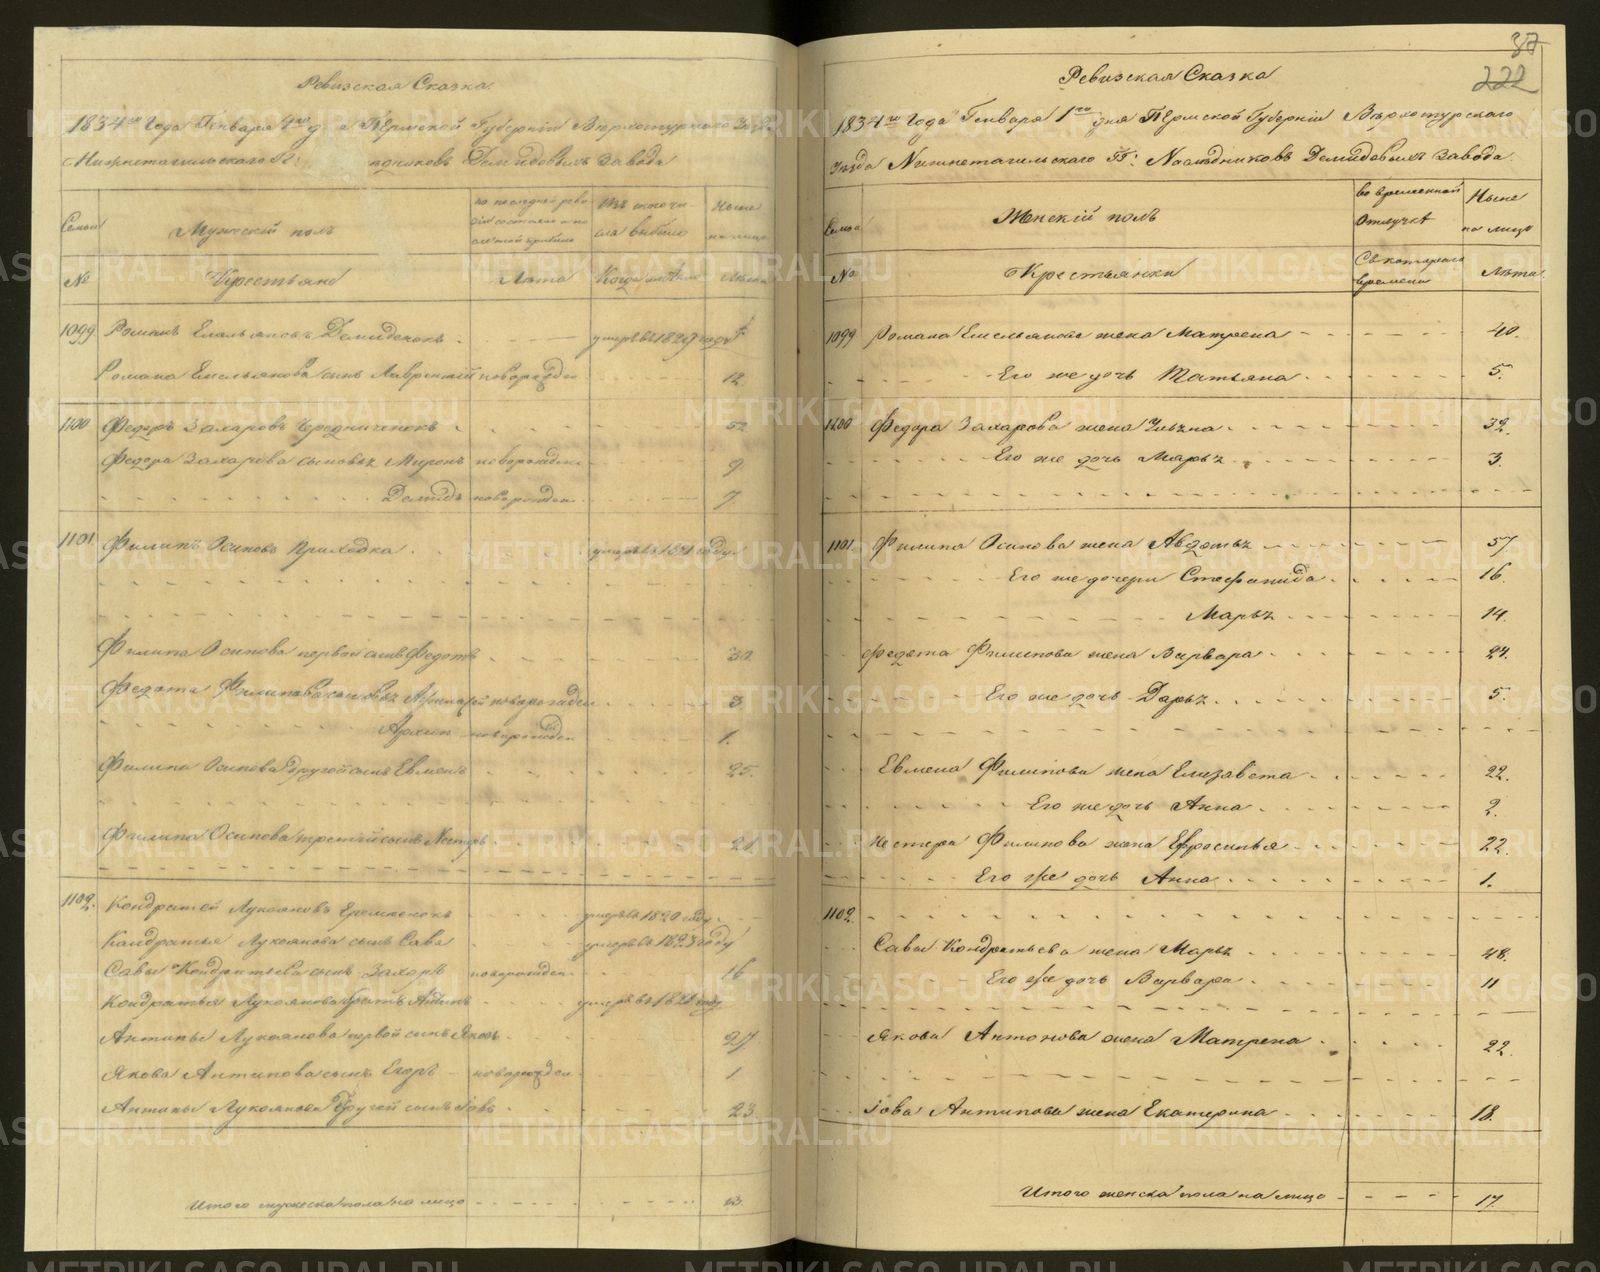 Ревизская Сказка
1834го Года Генваря 1го д а Пермской Губернiи Верхотурского Уезда
Нижнетагильского Г: Наследниковъ Демидовыхъ завода
Семьи
Мужескiй полъ
Изъ того числа выбыло
Ныне на лицо
№
Крестьяне
Лѣта
Когда именно
Лѣта
1099 Романъ Емельяновъ Демиденокъ умеръ въ 1829 году
Романа Емельянова сынъ Лаврентiй новорожден 12
1100 Федоръ Захаровъ Чередниченокъ 52
Федора Захарова сыновья Миронъ новорожден 9
Демидъ новорожден 7
1101 Филипъ Осиповъ Приходка умеръ въ 1831 году
Филипа Осипова первой сынъ Федотъ 30
Федота Филипова сыновья новорожден 3
Архип новорожден 1.
Филипа Осипова другой сынъ Евменъ 25.
Филипа Осипова третiй сынъ Нестеръ 21
1102. Кондратей Лукояновъ Еременокъ умеръ въ 1820 году
Кондратья Лукоянова сынъ Сава умеръ въ 1823 году
Савы Кондратьева сынъ Захаръ новорожден 16
Кондратья Лукоянова братъ Антипъ умеръ въ 1821 году
Антипы Лукоянова первой сынъ Яковъ 27
Якова Антипова сынъ Егоръ новорожден 1
Антипы Лукоянова другой сынъ Iовъ 23
Итого мужеска пола на лицо 13.
37
222
Ревизская Сказка
1834го Года Генваря 1го дня Пермской Губернiи Верхотурского
Уезда Нижнетагильского ГГ: Наследниковъ Демидовыхъ завода.
Семьи
Женскiй полъ
во временной отлучке
Ныне на лицо
№
Крестьянки
Съ котораго времени
Лѣта
1099 Романа Емельянова жена Матрена 40.
Его же дочь Татьяна 5.
1100 Федора Захарова жена Ульяна 32.
Его же дочь Марья 3.
1101 Филипа Осипова жена Авдотья 57
Его же дочери Стефанида 16.
Марья 14.
Федота Филипова жена Варвара 24.
Его же дочь Дарья 5.
Евмена Филипова жена Елизавета 22.
Его же дочь Анна 2.
Нестера Филипова жена Ефросинья 22.
Его же дочь Анна 1.
1102.
Савы Кондратьева жена Марья 48.
Его же дочь Варвара 11
Якова Антонова жена Матрена 22.
Iова Антипова жена Екатерина 18.
Итого женска пола на лицо 17.
METRIKI.GASO-URAL.RU